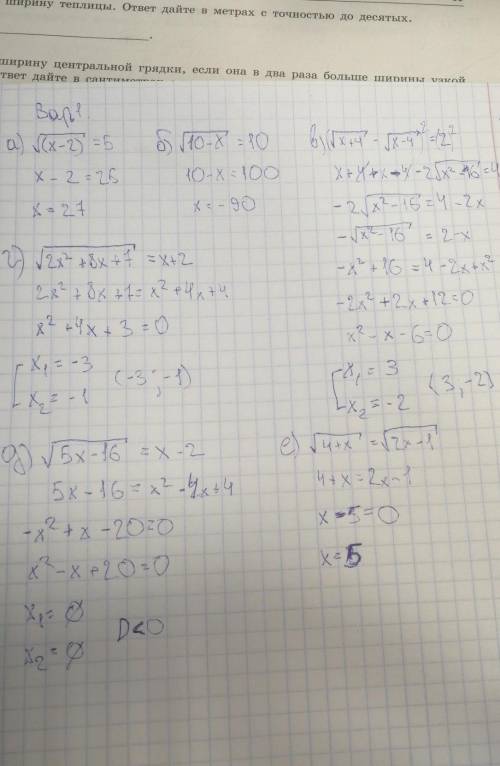 ширину теплицы. Ответ дайте в метрах с точностью до десятых.
ширину центральной грядки, если она в два раза больше ширины узкой
твет дайте в
Вар1.
а) √(x-2) = 5
x - 2 = 25
x = 27
б) √10-x = 10
10-x = 100
x = -90
в) (√x+4 - √x-4)² = (2)²
x+4+x-4-2√x²-16 = 4
-2√x²-16 = 4-2x
-√x²-16 = 2-x
-x²+16 = 4-2x+x²
-2x²+2x+12=0
x²-x-6=0
x₁ = 3
x₂ = -2
(3,-2)
г) √2x²+8x+7 = x+2
2x²+8x+7 = x²+4x+4
x²+4x+3=0
x₁ = -3
x₂ = -1
(-3;-1)
д) √5x-16 = x-2
5x-16 = x²-4x+4
-x²+x-20=0
x²-x+20=0
x₁ = Ø
x₂ = Ø
D<0
е) √4+x = √2x-1
4+x = 2x-1
x-5=0
x=5